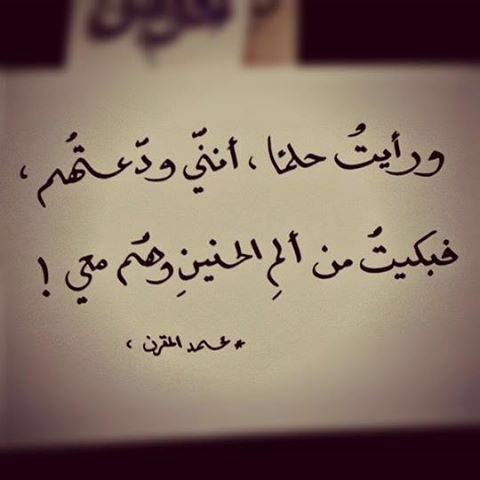 ورأيتُ حلمًا ، أنني ودّعتهُم ،
فبكيتُ من ألمِ الحنينِ وهُم معي !
* محمد المقرن ،